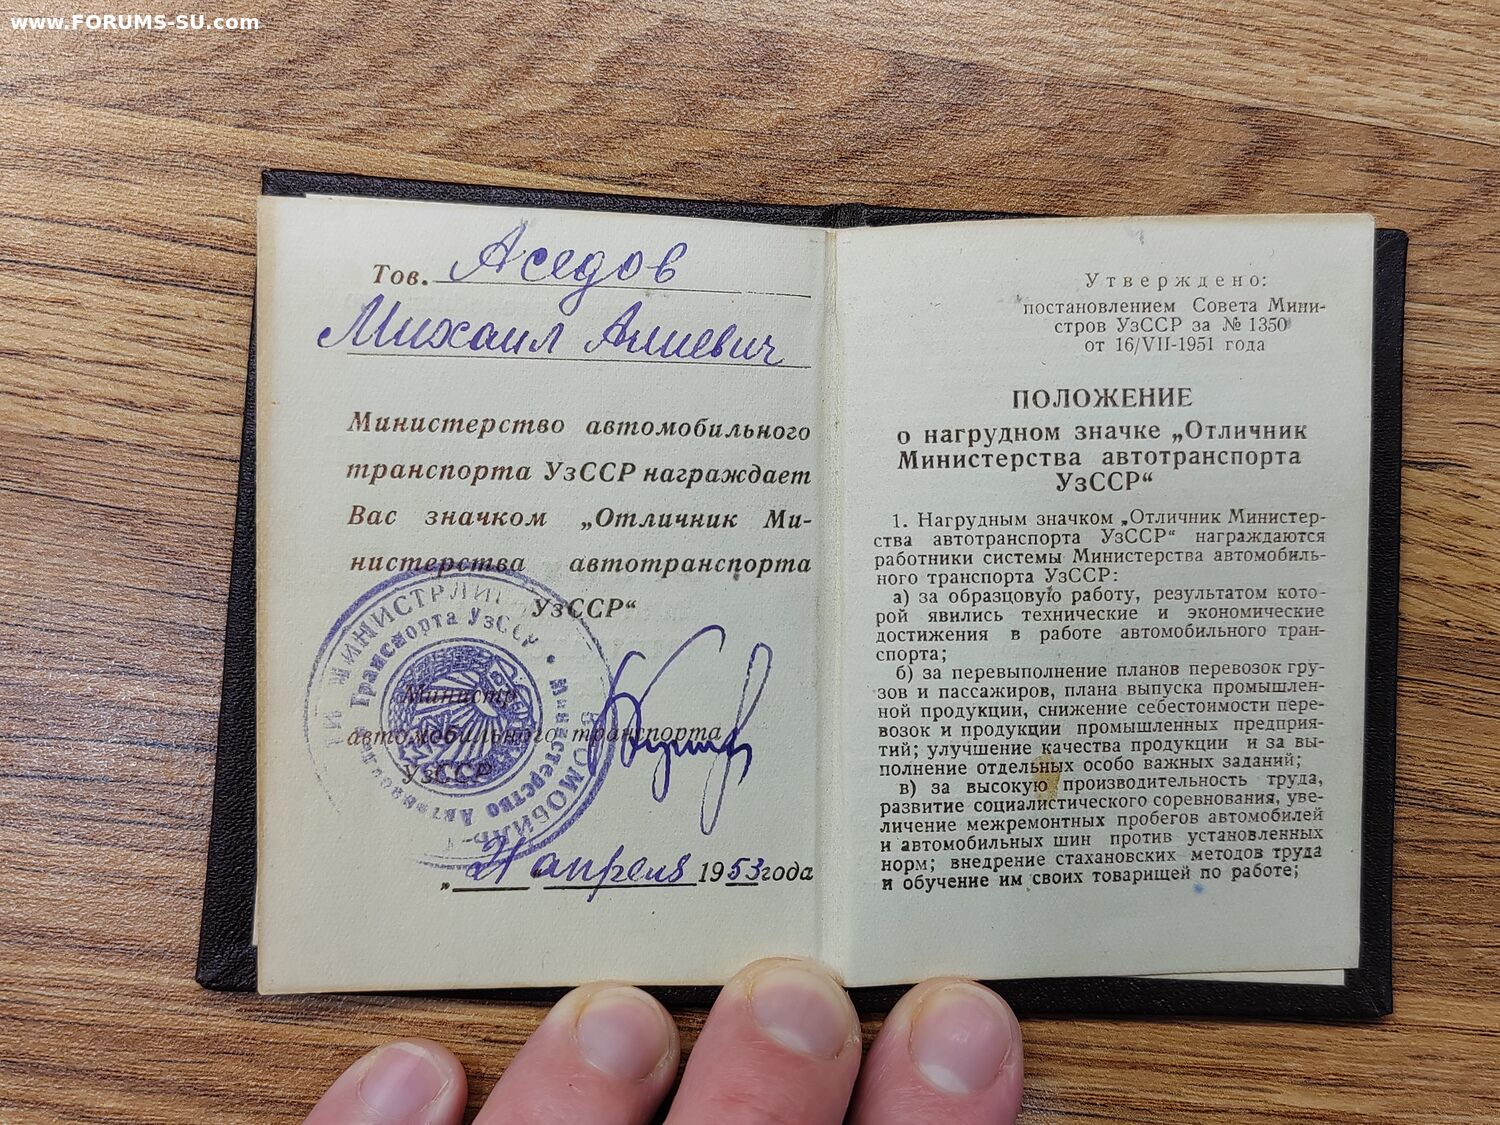 www.FORUMS-SU.com
Тов. Аседов
Михаил Алиевич
Министерство автомобильного
транспорта УзССР награждает
Вас значком „Отличник Ми-
нистерства автотранспорта
УзССР“
Министр
автомобильного транспорта
УзССР
„21“ апреля 1953 года
Транспорта УзССР • Министерство Автомобильно
Утверждено:
постановлением Совета Мини-
стров УзССР за № 1350
от 16/VII-1951 года
ПОЛОЖЕНИЕ
о нагрудном значке „Отличник
Министерства автотранспорта
УзССР“
1. Нагрудным значком „Отличник Министер-
ства автотранспорта УзССР“ награждаются
работники системы Министерства автомобиль-
ного транспорта УзССР:
а) за образцовую работу, результатом кото-
рой явились технические и экономические
достижения в работе автомобильного тран-
спорта;
б) за перевыполнение планов перевозок гру-
зов и пассажиров, плана выпуска промышлен-
ной продукции, снижение себестоимости пере-
возок и продукции промышленных предприя-
тий; улучшение качества продукции и за вы-
полнение отдельных особо важных заданий;
в) за высокую производительность труда,
развитие социалистического соревнования, уве-
личение межремонтных пробегов автомобилей
и автомобильных шин против установленных
норм; внедрение стахановских методов труда
и обучение им своих товарищей по работе;